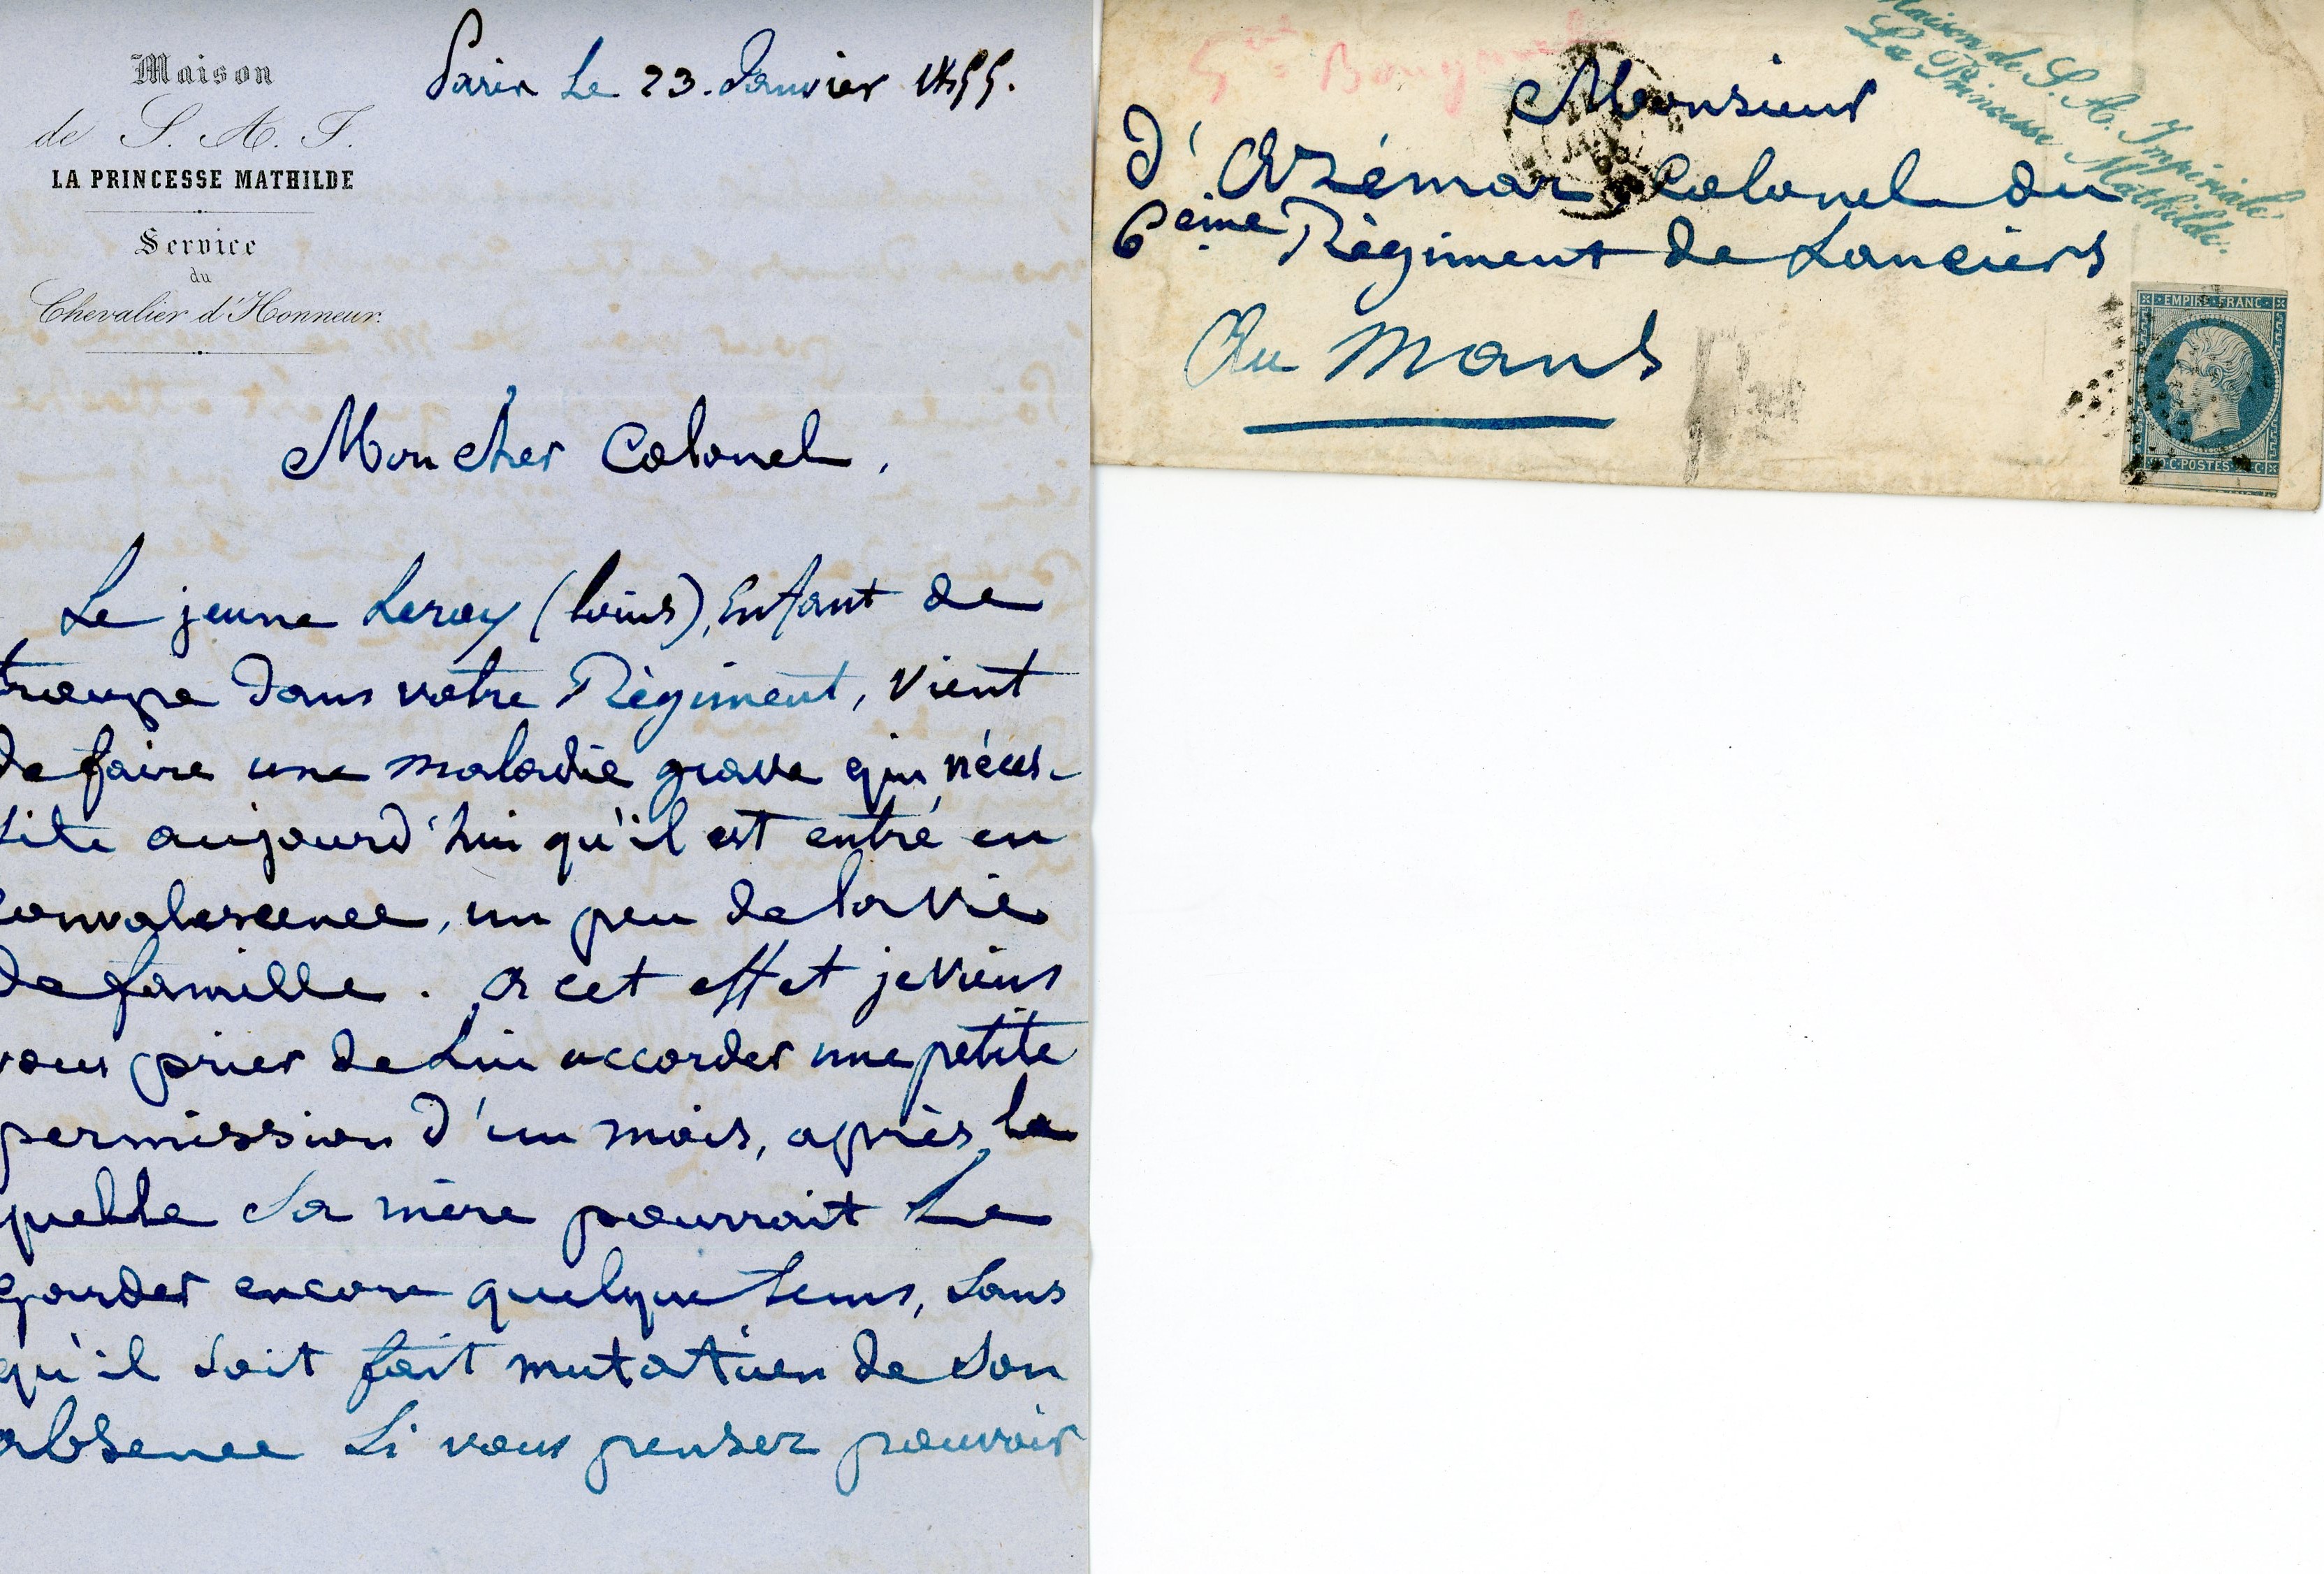 Maison
de S. A. I.
LA PRINCESSE MATHILDE
Service
du
Chevalier d'Honneur.
Paris Le 23. Janvier 1855.
Mon cher Colonel,
Le jeune Leroy (Louis), Enfant de
troupe dans votre Régiment, vient
de faire une maladie grave qui néces-
site aujourd'hui qu'il est entré en
convalescence, un peu de la vie
de famille. a cet effet je viens
vous prier de Lui accorder une petite
permission d'un mois, après la
quelle sa mère pourrait Le
garder encore quelque tems, sans
qu'il soit fait mutation de son
absence si vous pensez pouvoir
Maison de S. A. Impériale
La Princesse Mathilde.
Monsieur
d'Azémar Colonel du
6eime Régiment de Lanciers
Au Mans
EMPIRE FRANC
POSTES